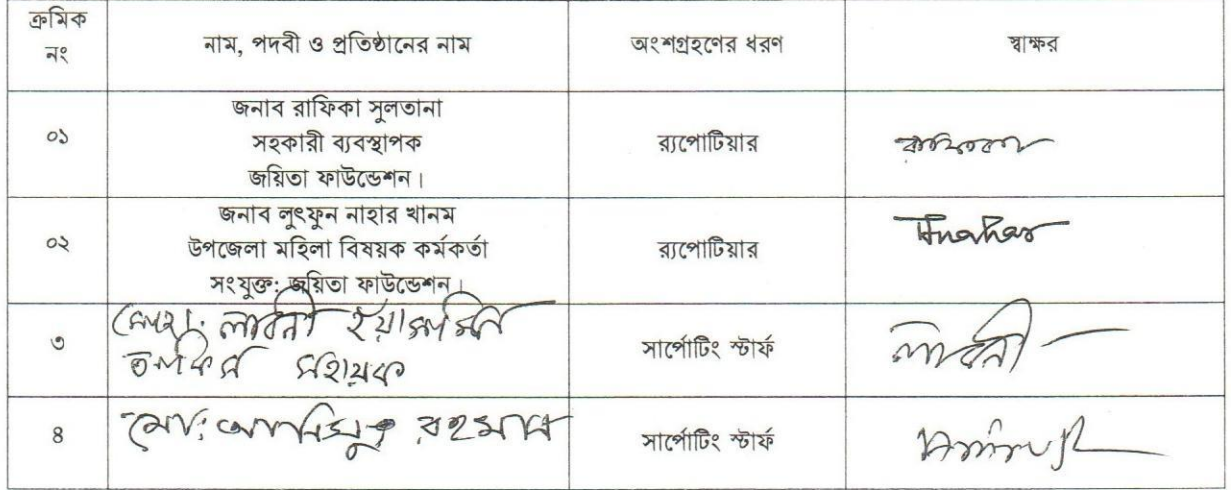 ক্রমিক
নং
নাম, পদবী ও প্রতিষ্ঠানের নাম
অংশগ্রহণের ধরণ
স্বাক্ষর
০১
জনাব রাফিকা সুলতানা
সহকারী ব্যবস্থাপক
জয়িতা ফাউন্ডেশন।
র‍্যপোটিয়ার
০২
জনাব লুৎফুন নাহার খানম
উপজেলা মহিলা বিষয়ক কর্মকর্তা
সংযুক্ত: জয়িতা ফাউন্ডেশন।
র‍্যপোটিয়ার
৩
লাবনী ইয়াসমিন
সহায়ক
সার্পোটিং স্টার্ফ
লাবনী
৪
মো: আনিসুর রহমান
সার্পোটিং স্টার্ফ